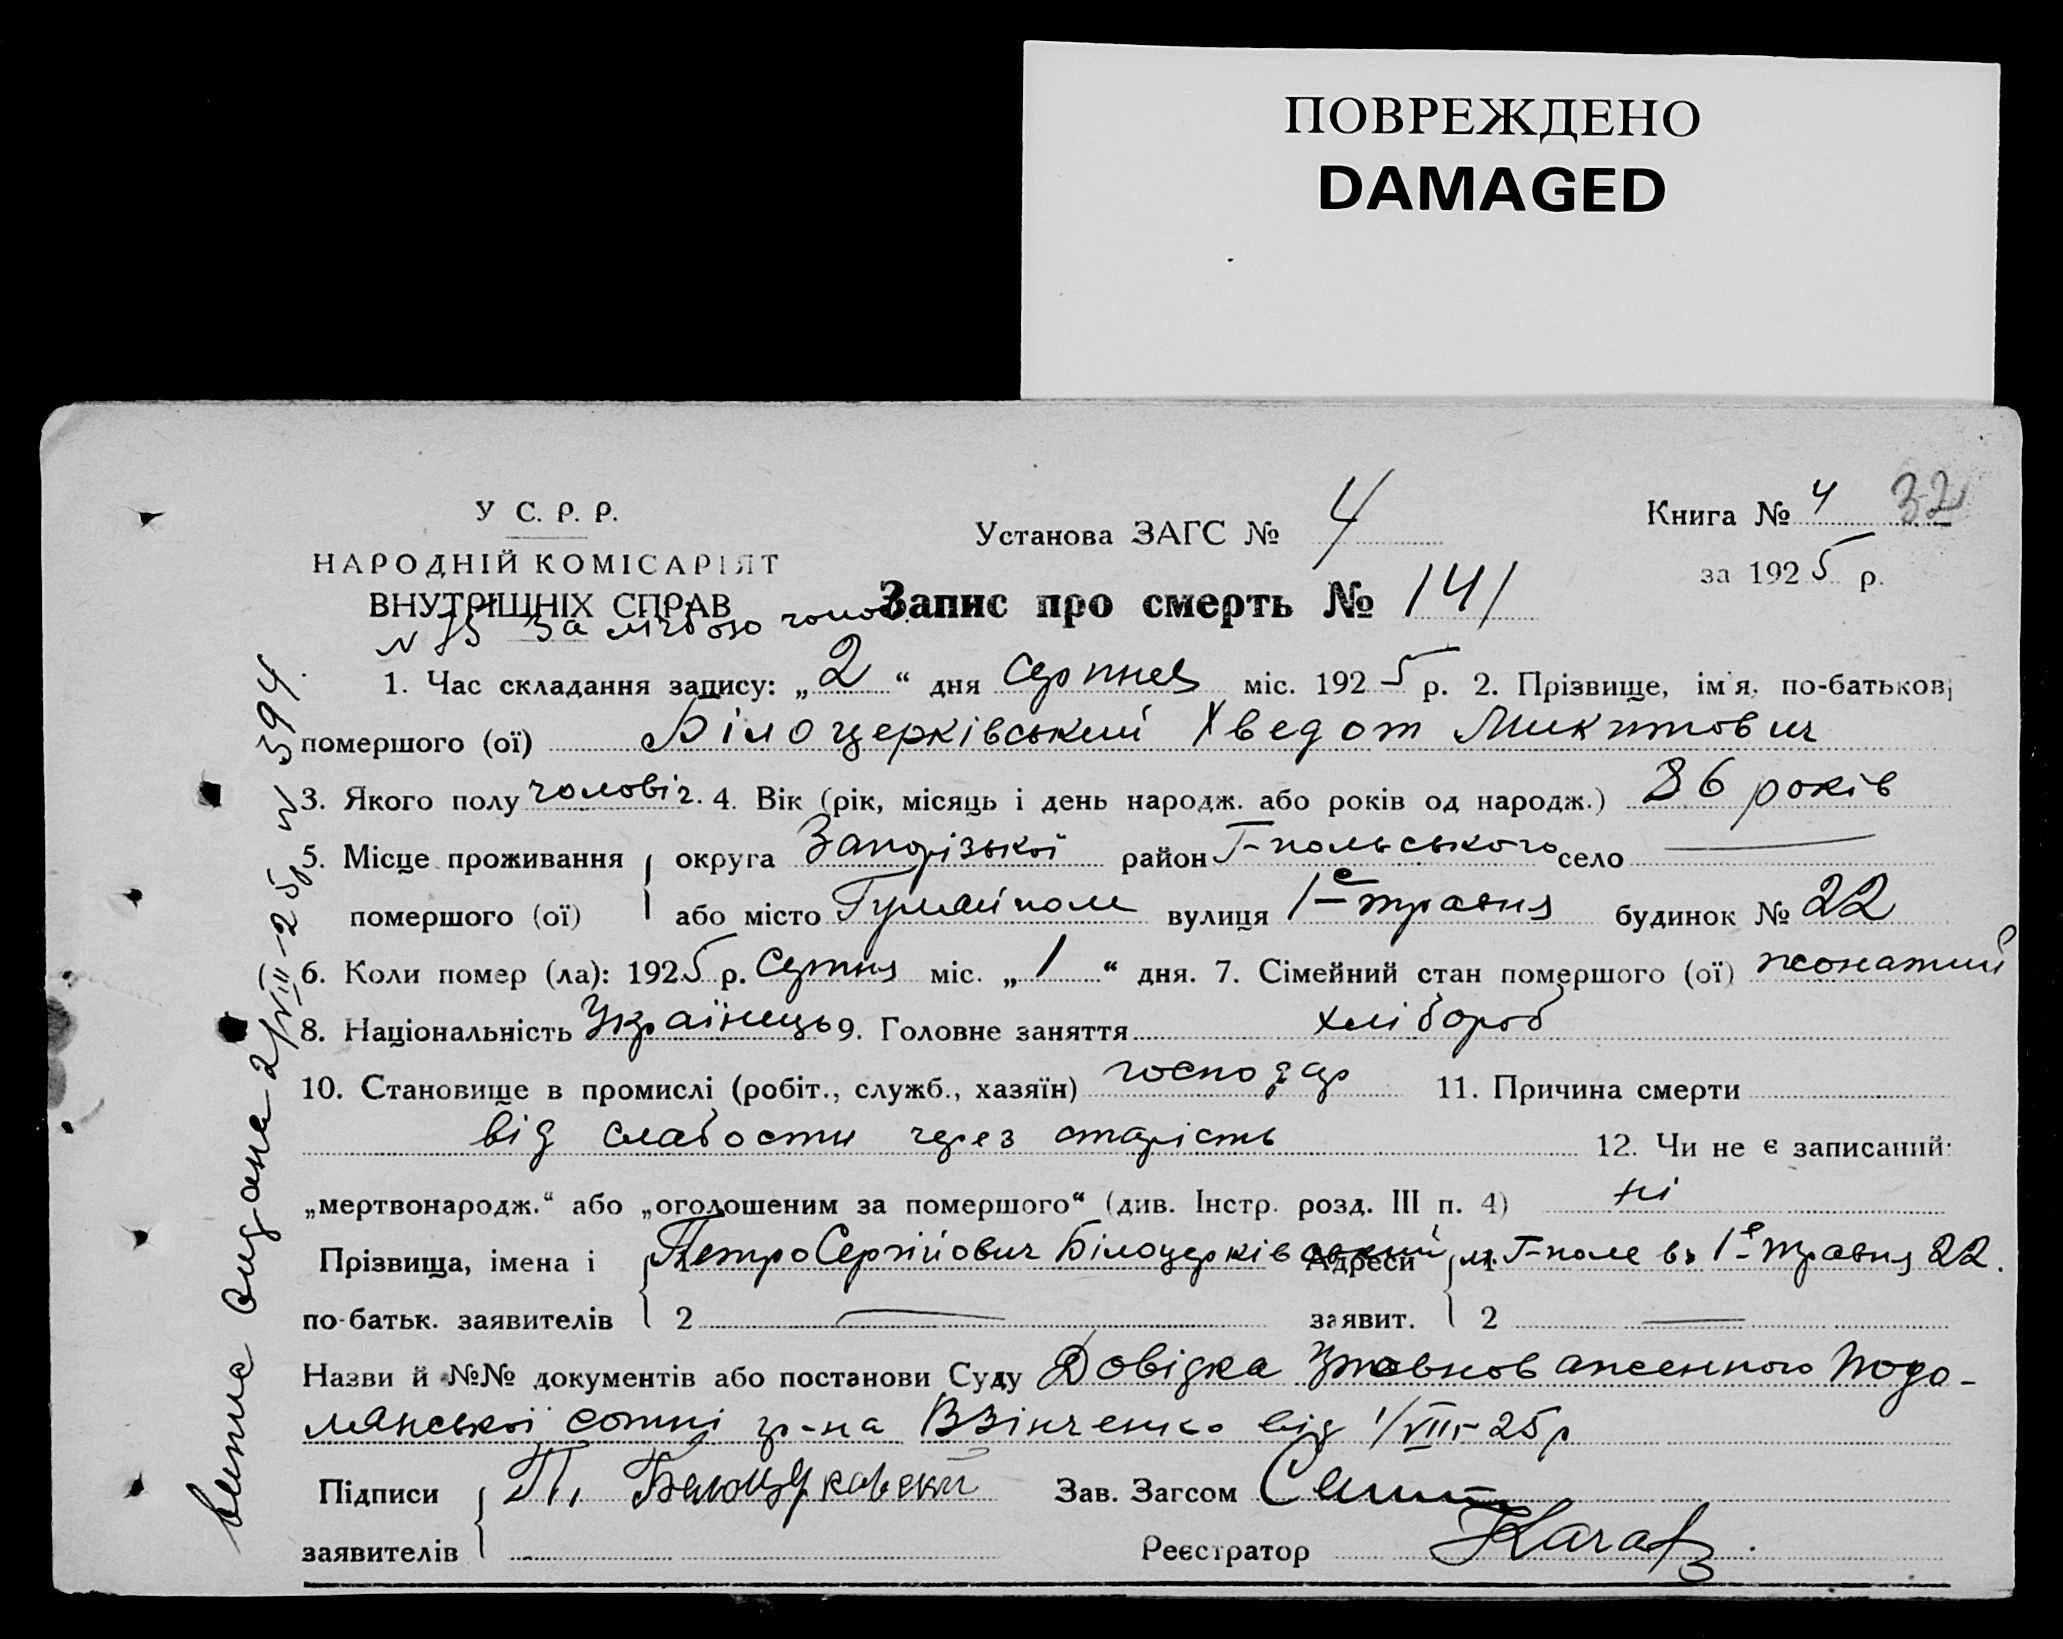 ПОВРЕЖДЕНО
DAMAGED
У С. Р. Р.
НАРОДНІЙ КОМІСАРІЯТ
ВНУТРІШНІХ СПРАВ
Установа ЗАГС № 4
Книга № 4 32
за 1925 р.
Запис про смерть № 141
за
1. Час складання запису: „2“ дня серпнев міс. 1925 р. 2. Прізвище, ім'я, по-батькові
помершого (ої) Білоцерківський Хведот Микитович
3. Якого полу чоловіч. 4. Вік (рік, місяць і день народж. або років од народж.) 86 років
5. Місце проживання округа Запорізької район Г-польського село —
помершого (ої) або місто Гуляйполе вулиця 1-е травня будинок № 22
6. Коли помер (ла): 1925 р. Серпня міс. „1“ дня. 7. Сімейний стан помершого (ої) жонатий
8. Національність Українець 9. Головне заняття хлібороб
10. Становище в промислі (робіт., служб., хазяїн) господар 11. Причина смерти
від слабости через старість 12. Чи не є записаний:
„мертвонародж.“ або „оголошеним за помершого“ (див. Інстр. розд. III п. 4) ні
Прізвища, імена і 1 Петро Сергійович Білоцерківський Адреси 1 м. Г-поле в. 1-е травня 22.
по-батьк. заявителів 2 — заявит. 2 —
Назви й №№ документів або постанови Суду Довідка уповноваженного Подо-
лянської сотні гр-на В Зінченко від 1/VIII-25 р
Підписи П. Белоцерковский Зав. Загсом
заявителів Реєстратор
видана 2/VIII-25 р № 394.